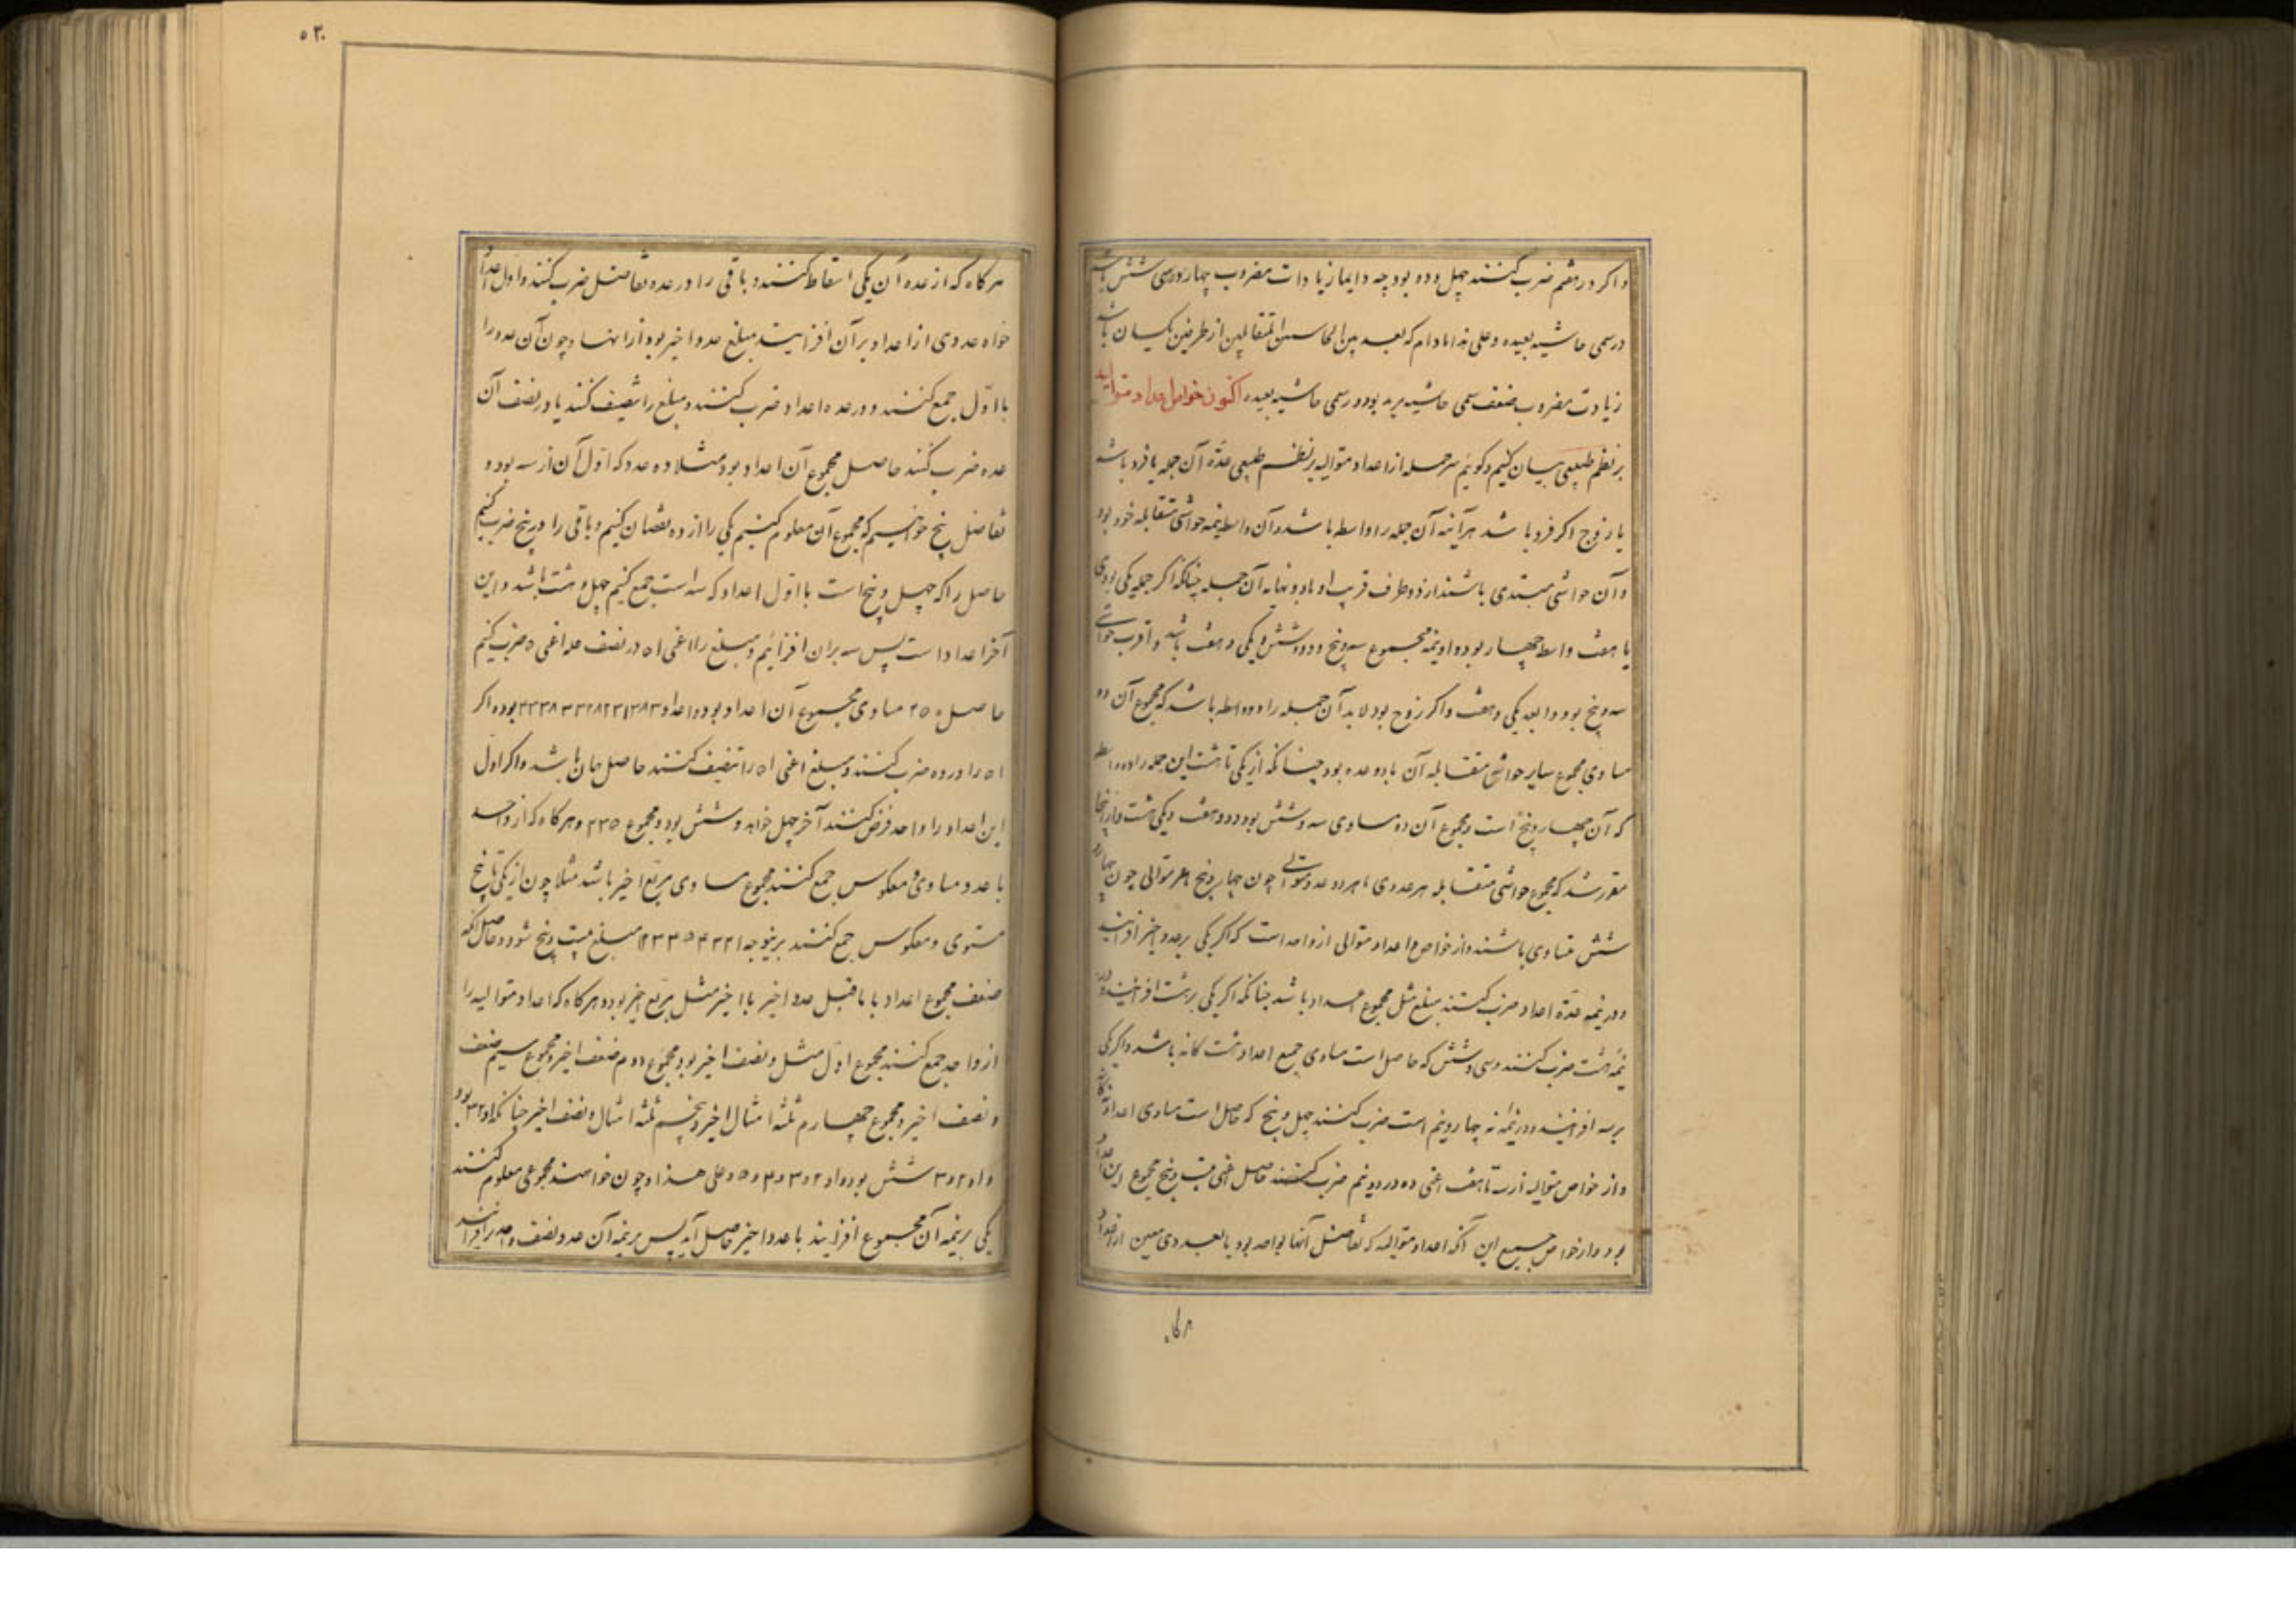 واکر در هفتم ضرب کنند چهل و دو بود چه دایما زیادات مضروب چهار در سمی شش باشد
در سمی حاشیه بعیده و علی هذا مادام که بعد بین الحاشیتین المتقابلین از طرفین یکسان باشد
زیادت مضروب ضعف سمی حاشیه بود در سمی حاشیه بعیده اکنون خواص اعداد متوالیه
بر نظم طبیعی بیان کنیم و کوئیم هر جمله از اعداد متوالیه بر نظم طبیعی عدّه آن جمله یا فرد باشد
یا زوج اکر فرد باشد هر آینه آن جمله را واسطه باشد و آن واسطه نیمه حواشی متقابله خود بود
و آن حواشی مبتدی باشند از دو طرف قریب او تا دو نهایه آن جمله چنانکه اکر جمله یکی بود تا
یا هفت واسطه چهار بود و او نیمه مجموع سه و پنج و دو و شش و یکی و هفت باشد و اقرب حواشی
سه و پنج بود و ابعد یکی و هفت و اکر زوج بود لابد آن جمله را دو واسطه باشد که مجموع آن دو
مساوی مجموع سایر حواشی متقابله آن با دو عدد بود چنانکه از یکی تا هشت این جمله را دو واسطه
که آن چهار و پنج است و مجموع آن دو مساوی سه و شش بود و دو و هفت و یکی و هشت و از اینجا
مقرر شد که مجموع حواشی متقابله هر عددی با هر دو عدد متوالی چون چهار و پنج با هر متوالی چون چهار و
شش متساوی باشند و از خواص اعداد متوالی از واحد است که اکر یکی بر عدد اخیر افزایند
و در نیمه عدّه اعداد ضرب کنند مبلغ مثل مجموع اعداد باشد چنانکه اکر یکی بر هشت افزایند و در
نیمه هشت ضرب کنند و سی و شش که حاصل است مساوی جمیع اعداد هشت کانه باشد و اکر یکی
بر نه افزایند و در نیمه نه چهار و نیم است ضرب کنند چهل و پنج که حاصل است مساوی اعداد نه کانه
و از خواص متوالیه از سه تا هفت اعنی ده در دو و نیم ضرب کنند حاصل اعنی بیست و پنج مجموع این اعداد
بود و از خواص جمیع این آنکه اعداد متوالیه که تفاضل آنها بواحد بود یا بعددی معین از اعداد
هر کاه
۵۲۰
هر کاه که از عده آن یکی اسقاط کنند و باقی را در عدد تفاضل ضرب کنند و اول اعداد
خواه عددی از اعداد بر آن افزایند مبلغ عدد اخیر بود از انها و چون آن عدد را
با اوّل جمع کنند و در عده اعداد ضرب کنند و مبلغ را تنصیف کنند یا در نصف آن
عده ضرب کنند حاصل مجموع آن اعداد بود مثلا ده عدد که اوّل آن از سه بود و
تفاضل پنج خواهیم که مجموع آن معلوم کنیم یکی را از ده نقصان کنیم و باقی را در پنج ضرب کنیم
حاصل را که چهل و پنج است با اوّل اعداد که سه است جمع کنیم چهل و هشت باشد و این
آخر اعداد است پس سه بران افزائیم و مبلغ را اعنی ۵۱ در نصف عده اعنی ۵ ضرب کنیم
حاصل ۲۵۵ مساوی مجموع آن اعداد بود و اعداد ۳ ۸ ۱۳ ۱۸ ۲۳ ۲۸ ۳۳ ۳۸ ۴۳ بود و اکر
۵۱ را در ده ضرب کنند و مبلغ اعنی ۵۱۰ را تنصیف کنند حاصل همان باشد و اکر اول
این اعداد را واحد فرض کنند آخر چهل و شش خواهد بود و مجموع ۲۳۵ و هر کاه که از واحد
با عدد مساوی و معکوس جمع کنند مجموع مساوی مربّع اخیر باشد مثلا چون از یکی تا پنج
مستوی و معکوس جمع کنند برینوجه ۱ ۲ ۳ ۴ ۵ ۴ ۳ ۲ ۱ مبلغ بیست و پنج شود و حاصل آنکه
ضعف مجموع اعداد با ماقبل عدد اخیر با اخیر مثل مربّع اخیر بود و هر کاه که اعداد متوالیه را
از واحد جمع کنند مجموع اوّل مثل و نصف اخیر بود و مجموع دوم ضعف اخیر و مجموع سیم ضعف
و نصف اخیر و مجموع چهارم ثلثه امثال اخیر و پنجم ثلثه امثال و نصف اخیر چنانکه ۱ و ۲ ۳ بود
و ۱ و ۲ و ۳ شش بود و ۱ و ۲ و ۳ و ۴ و ۵ و علی هذا و چون خواهند مجموعی معلوم کنند
یکی بر نیمه آن مجموع افزایند با عدد اخیر حاصل آید پس بر نیمه آن عدد نصف واحد را افزایند